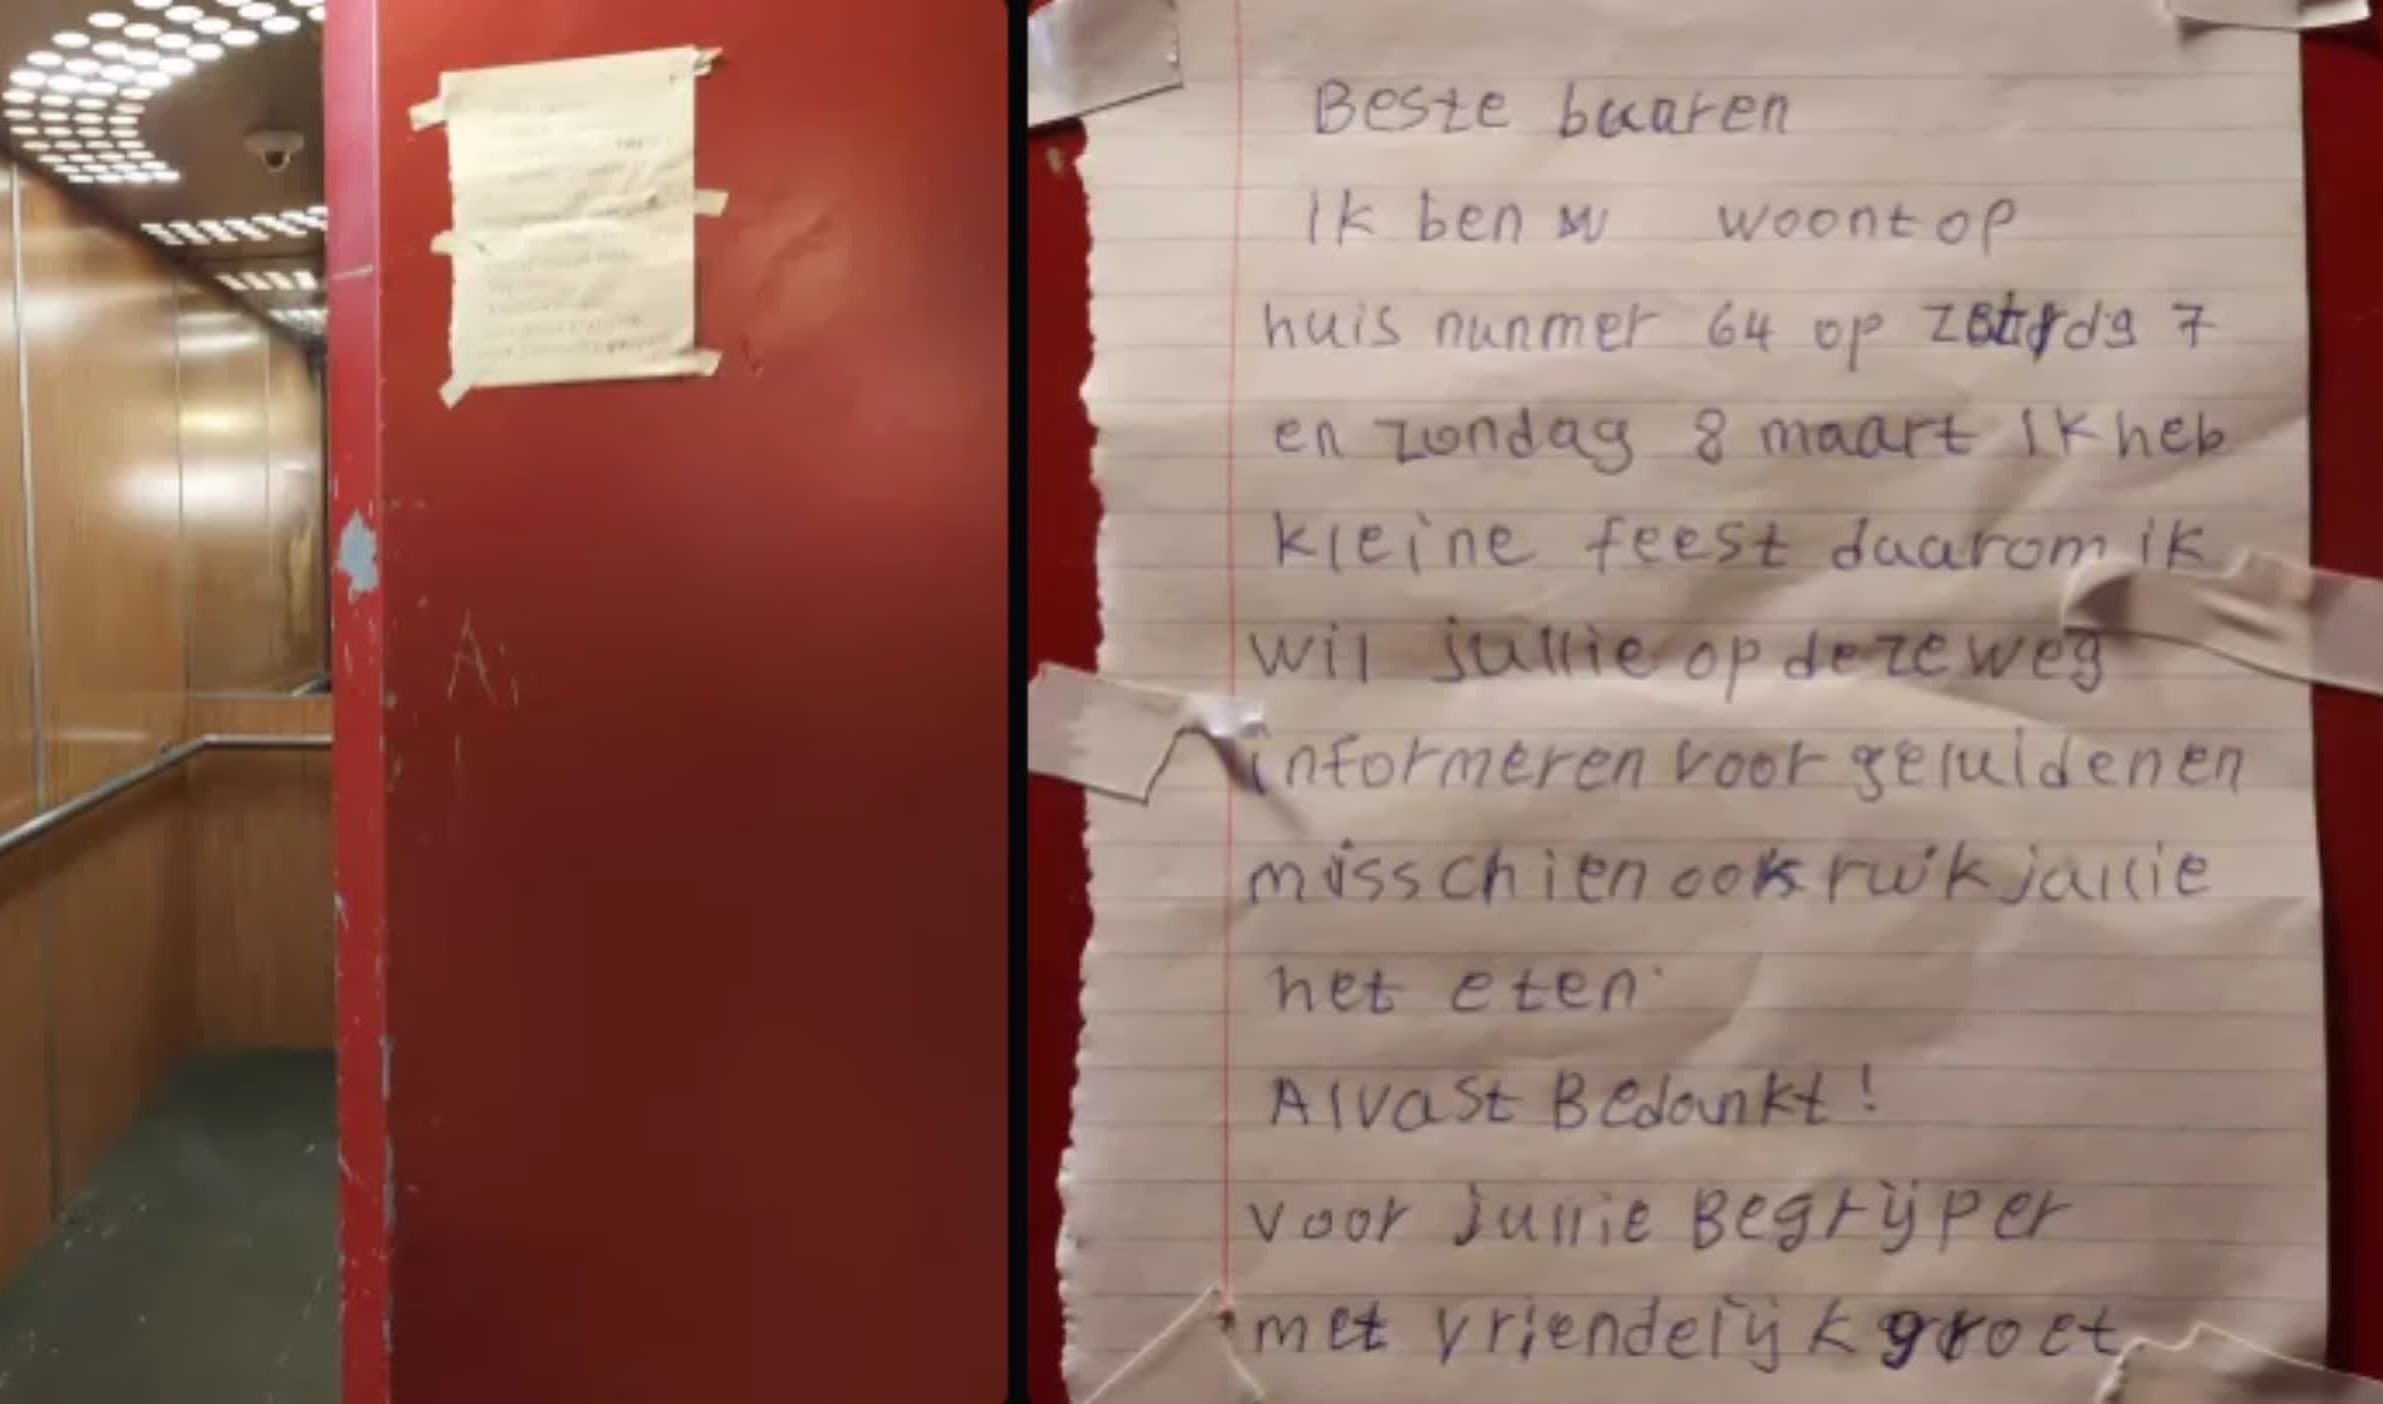 A
Beste buaren
Ik ben w woont op
huis nunmer 64 op 7
en zondag 8 maart Ik heb
kleine feest daarom ik
wil jullie op deze weg
informeren voor geluidenen
misschien ook ruik jullie
het eten
Alvast Bedankt!
voor jullie Begrijper
met vriendelijk groet